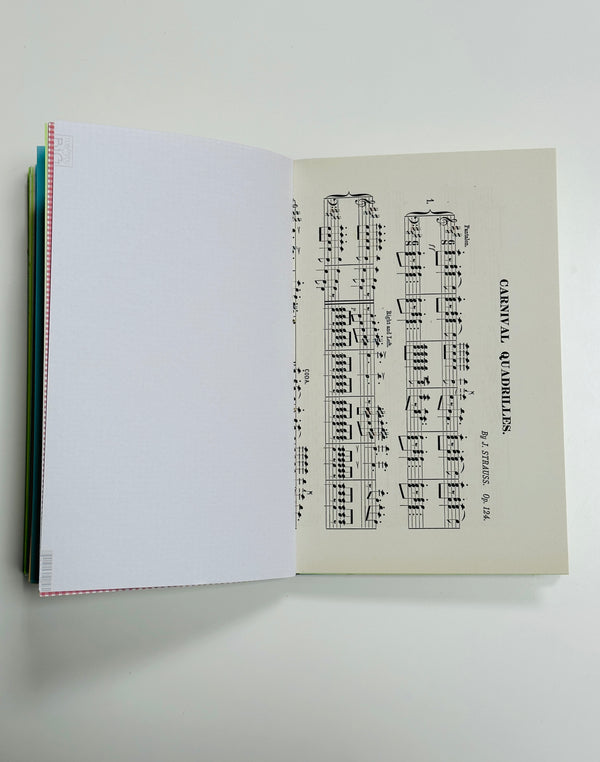 CARNIVAL QUADRILLES.
By J. STRAUSS. Op. 124.
Pantalon.
1.
Right and Left.
CODA.